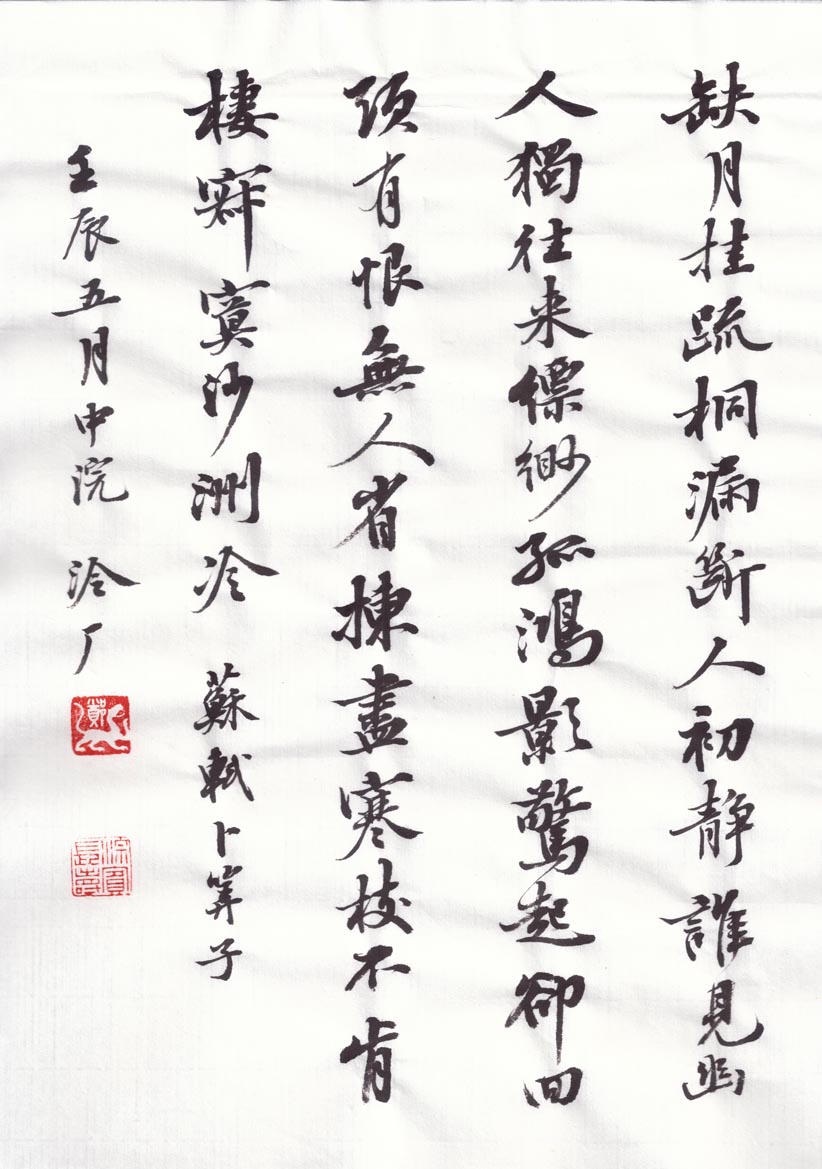 缺月挂疏桐漏斷人初静誰見幽
人獨往来縹緲孤鴻影驚起卻回
頭有恨無人省揀盡寒枝不肯
棲寂寞沙洲冷 蘇軾卜算子
壬辰五月中浣 泠厂